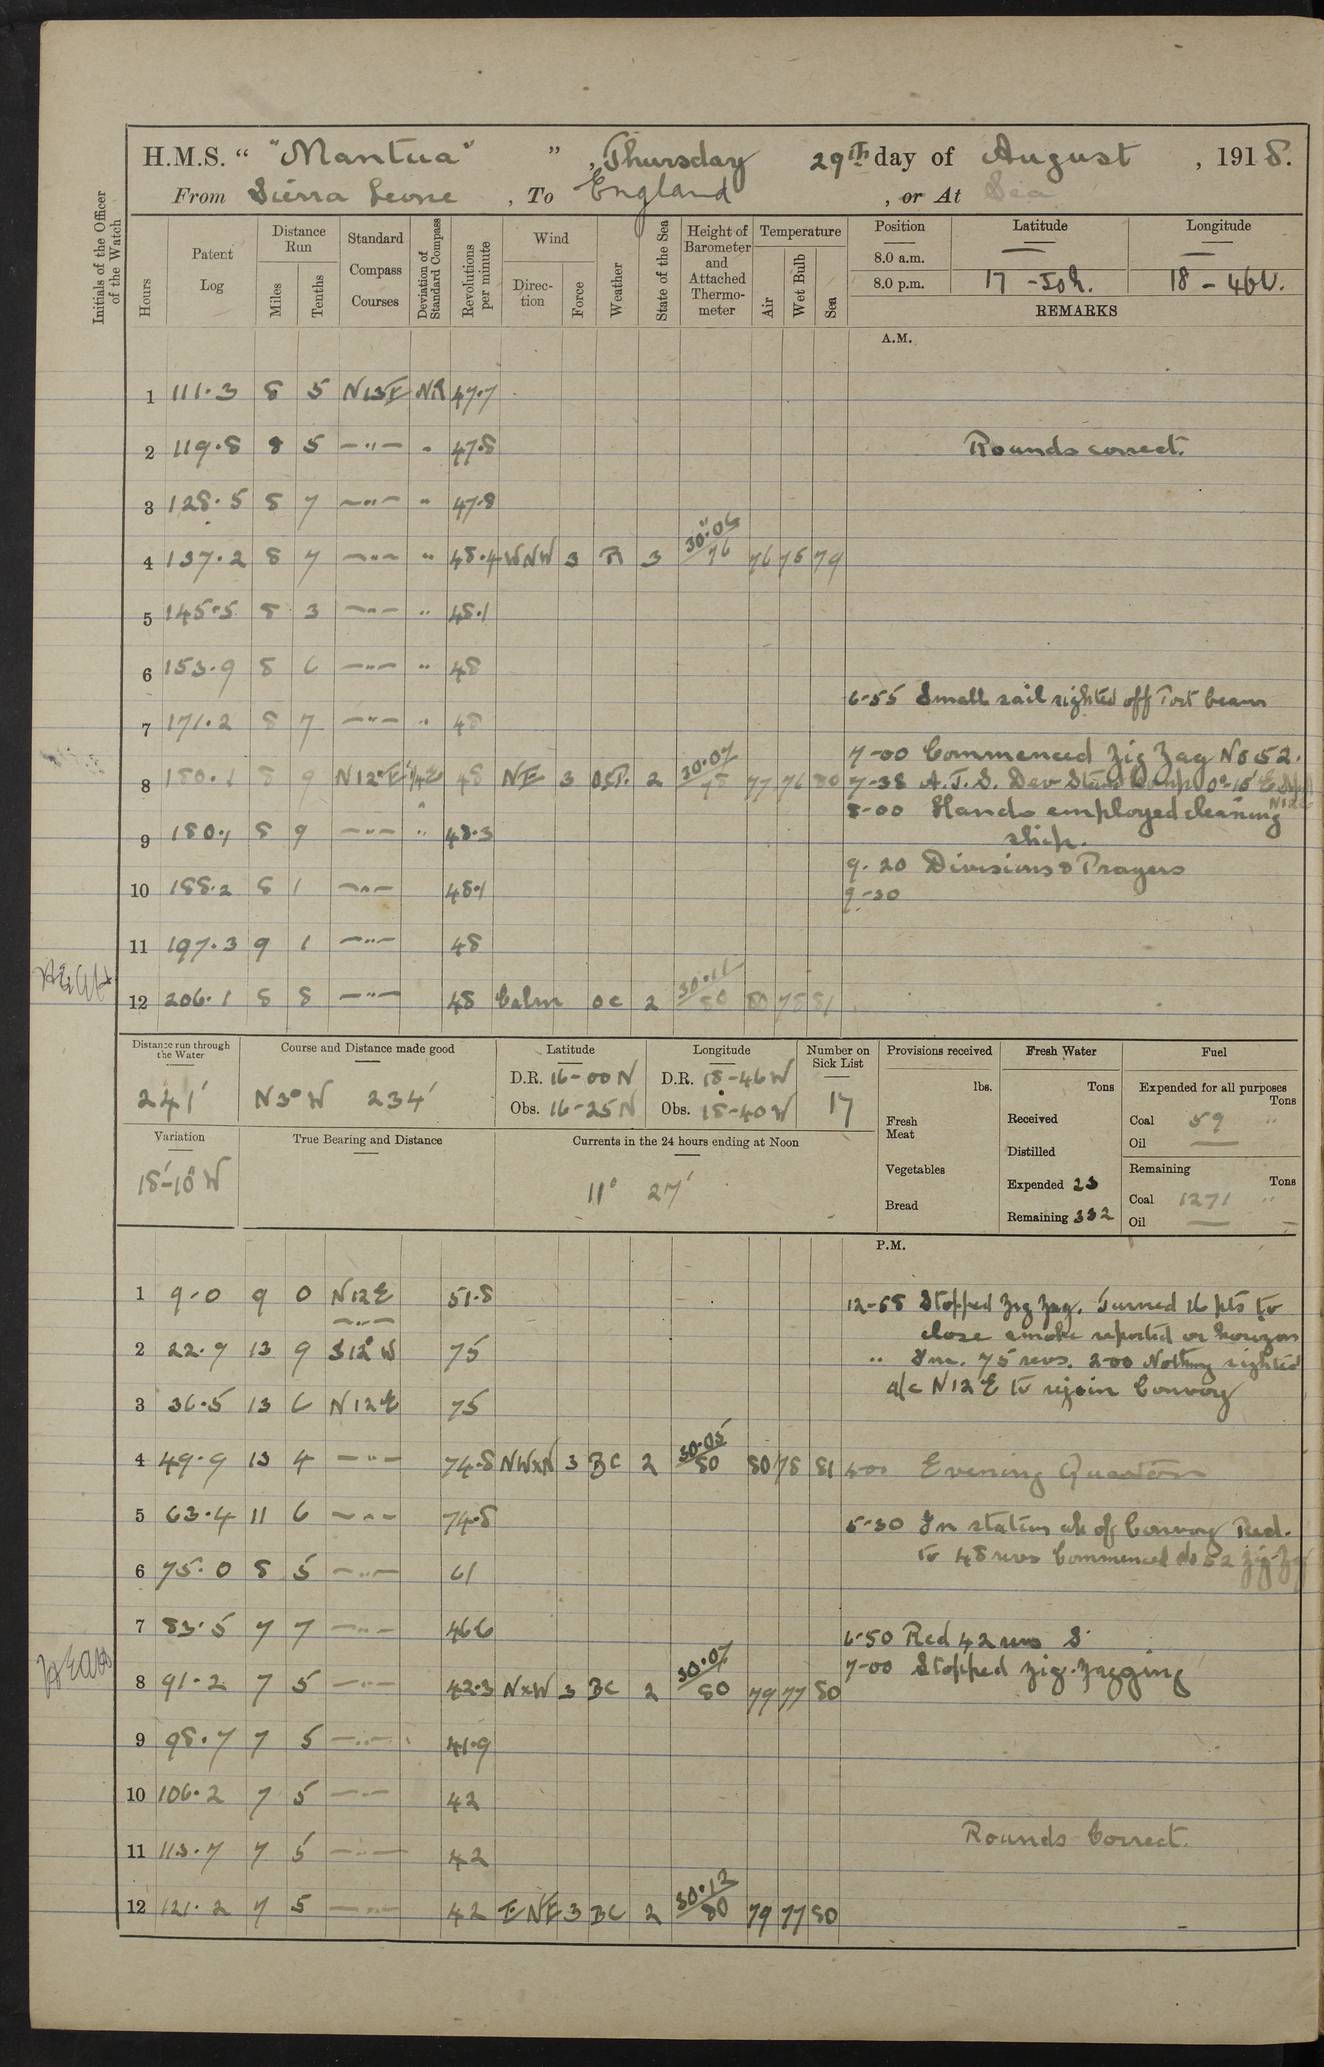 H.M.S. " "Mantua" ", Thursday 29th day of August, 1918.
From Sierra Leone, To England, or At Sea
Initials of the Officer of the Watch
Hours
Patent Log
Distance Run
Miles
Tenths
Standard Compass Courses
Deviation of Standard Compass
Revolutions per minute
Wind
Direction
Force
Weather
State of the Sea
Height of Barometer and Attached Thermometer
Temperature
Air
Wet Bulb
Sea
Position Latitude Longitude
8.0 a.m. — —
8.0 p.m. 17 - 50 N. 18 - 46 W.
REMARKS
A.M.
1 111.3 8 5 N13E 47.7
2 119.8 8 5 —"— " 47.8 Rounds correct.
3 128.5 8 7 —"— " 47.8
4 137.2 8 7 —"— " 48.4 WNW 3 R 3 30.04 76 76 75 79
5 145.5 8 3 —"— " 48.1
6 153.9 8 6 —"— " 48
6-55 Small sail sighted off Port beam
7 171.2 8 7 —"— " 48
7-00 Commenced Zig Zag No 52.
8 180.1 8 9 N12°E 48 NE 3 2 30.07 78 77 76 80 7-38 A.T.S. Dev Stand Comp
8-00 Hands employed cleaning
ship.
9 180.1 8 9 —"— " 48.3
9.20 Divisions & Prayers
10 188.2 8 1 —"— 48.1 9-30
11 197.3 9 1 —"— 48
12 206.1 8 8 —"— 48 Calm oc 2 30.11 80 80 78 81
Distance run through the Water Course and Distance made good Latitude Longitude Number on Sick List Provisions received Fresh Water Fuel
241' N3°W 234' D.R. 16-00 N D.R. 18-46 W 17 lbs. Tons Expended for all purposes Tons
Obs. 16-25 N Obs. 18-40 W Fresh Meat Received Coal 59 "
Oil —
Variation True Bearing and Distance Currents in the 24 hours ending at Noon
Vegetables Distilled Remaining Tons
18'-10° W 11° 27' Expended 23 Coal 1271 "
Bread Remaining 332 Oil —
P.M.
1 9.0 9 0 N12E 51.8 12-58 Stopped Zig Zag. Turned 16 pts to
—"— close smoke reported on horizon
2 22.9 13 9 S12°W 75 " Inc. 75 revs. 2-00 Nothing sighted
a/c N12°E to rejoin Convoy
3 36.5 13 6 N12°E 75
4 49.9 13 4 —"— 74.8 NWxN 3 BC 2 30.05 80 80 78 81 4-00 Evening Quarters
5 63.4 11 6 —"— 74.8 5-30 In station ah of Convoy Red.
to 48 revs Commenced No 52 Zig-Zag
6 75.0 8 5 —"— 61
7 83.5 7 7 —"— 46.6 6-50 Red 42 revs
7-00 Stopped Zig-Zagging
8 91.2 7 5 —"— 42.3 NxW 3 BC 2 30.07 80 79 77 80
9 98.7 7 5 —"— 41.9
10 106.2 7 5 —"— 42
Rounds Correct.
11 113.7 7 5 —"— 42
12 121.2 7 5 —"— 42 ENE 3 BC 2 30.12 80 79 77 80